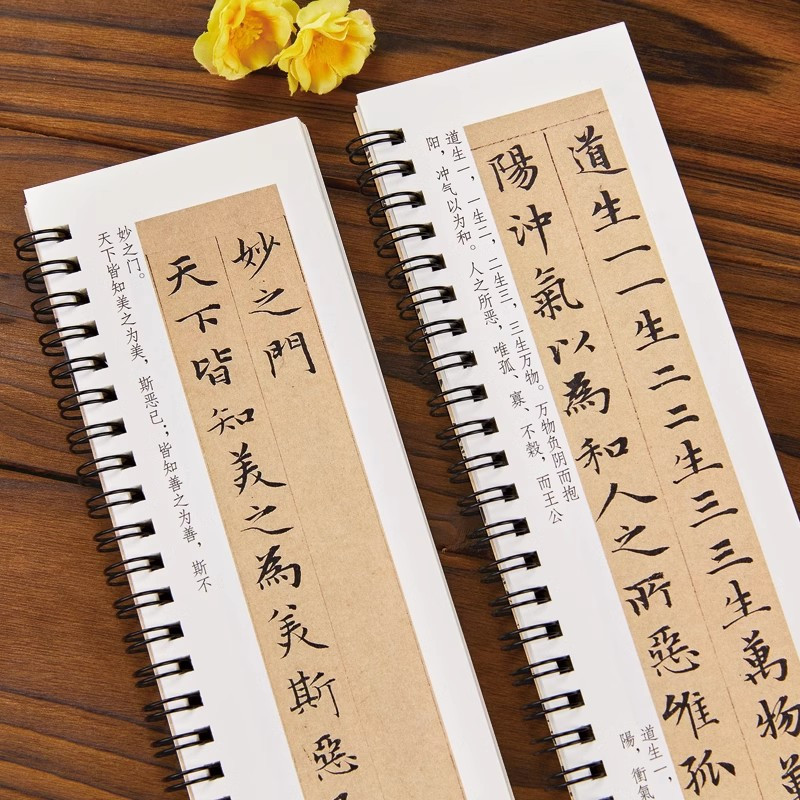 妙之門
天下皆知美之為美斯惡
妙之门。
天下皆知美之为美，斯恶已；皆知善之为善，斯不
道生一一生二二生三三生萬物萬
陽沖氣以為和人之所惡唯孤
道生一，一生二，二生三，三生万物。万物负阴而抱
阳，冲气以为和。人之所恶，唯孤、寡、不穀，而王公
道生一，
陽，衝氣